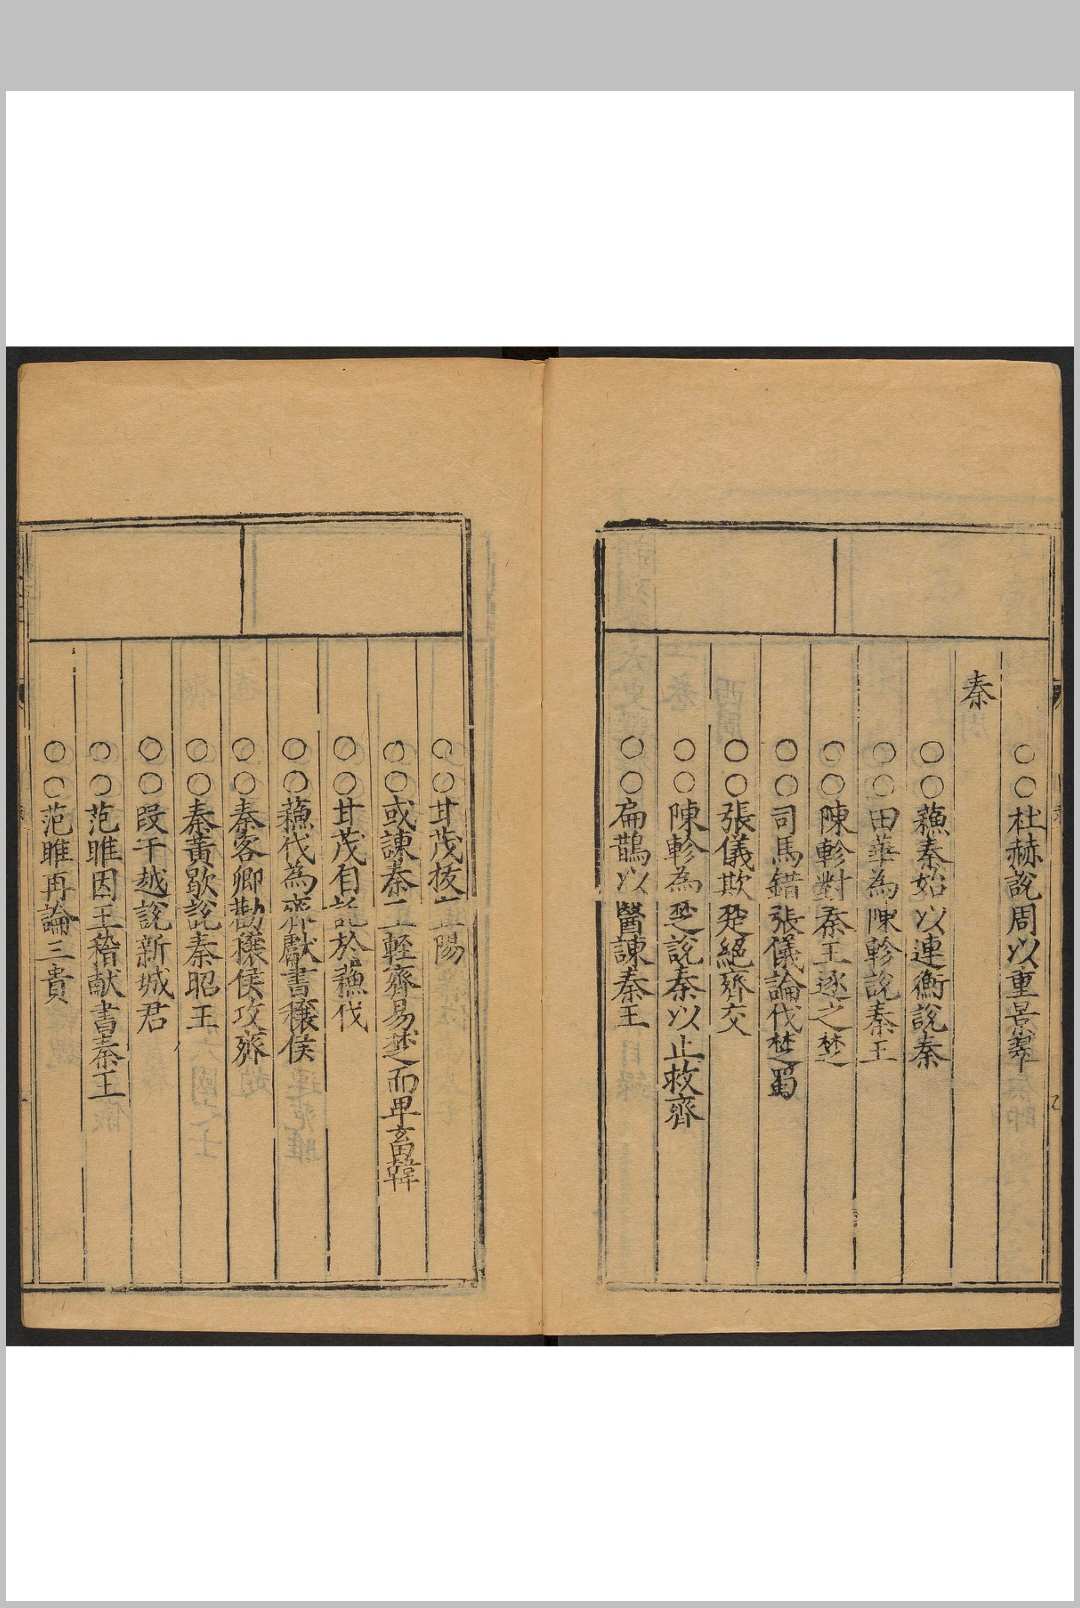 ○○杜赫説周以重景翠
秦
○○蘓秦始以連衡説秦
○○田莘為陳軫説秦王
○○陳軫對秦王逐之楚
○○司馬錯張儀論伐楚蜀
○○張儀欺楚絕齊交
○○陳軫為楚説秦以止救齊
○○扁鵲以醫諫秦王
○○甘茂拔宜陽
○○或諫秦王輕齊易楚而卑畜韓
○○甘茂自託於蘓代
○○蘓代為齊獻書穰侯
○○秦客卿勸穰侯攻齊
○○秦黃歇説秦昭王
○○段干越説新城君
○○范雎因王稽献書秦王
○○范雎再論三貴